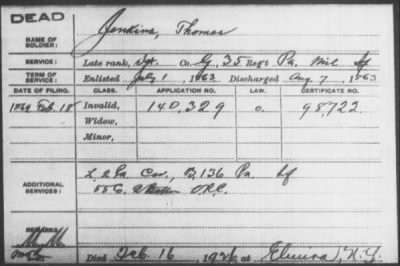 DEAD
NAME OF SOLDIER: Jenkins, Thomas
SERVICE: Late rank, Sgt. Co. G, 35 Reg't Pa. Mil Inf
TERM OF SERVICE: Enlisted July 1, 1863 Discharged Aug. 7, 1863
DATE OF FILING. CLASS. APPLICATION NO. LAW. CERTIFICATE NO.
Feb. 18 Invalid, 140.329 98722
Widow,
Minor,
ADDITIONAL SERVICES: L 2 Pa Cav., B, 136 Pa. Inf
REMARKS:
Died Feb. 16, 1926, at Elmira, N.Y.